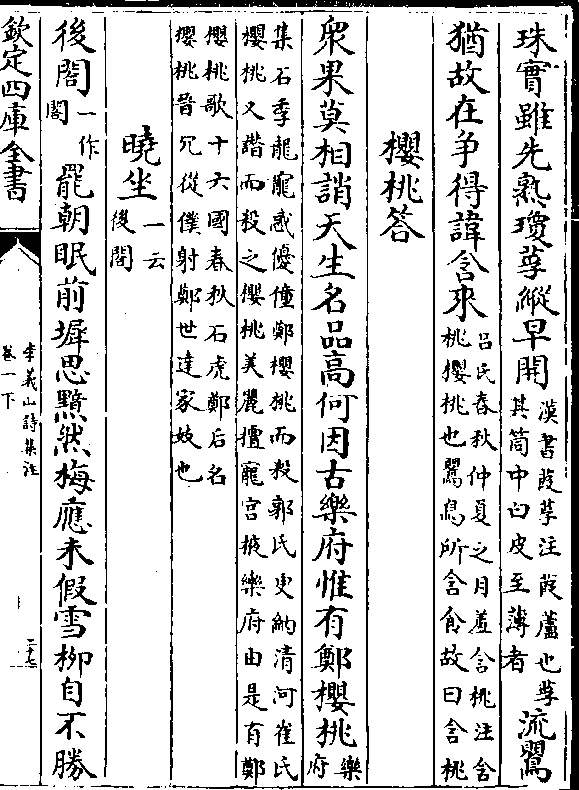 珠實雖先熟瓊莩縱早開漢書葭莩注葭蘆也莩其筩中白皮至薄者流鶯
猶故在争得諱含來呂氏春秋仲夏之月羞含桃注含桃櫻桃也鶯鳥所含食故曰含桃
櫻桃答
衆果莫相誚天生名品髙何因古樂府惟有鄭櫻桃樂府
集石季龍寵惑優僮鄭櫻桃而殺郭氏更納清河崔氏櫻桃又譖而殺之櫻桃美麗擅寵宫掖樂府由是有鄭
櫻桃歌十六國春秋石虎鄭后名櫻桃晉冗從僕射鄭世達家妓也
曉坐一云後閣
後閤一作閣罷朝眠前墀思黯然梅應未假雪栁自不勝
欽定四庫全書
李義山詩集注
卷一下
二十七